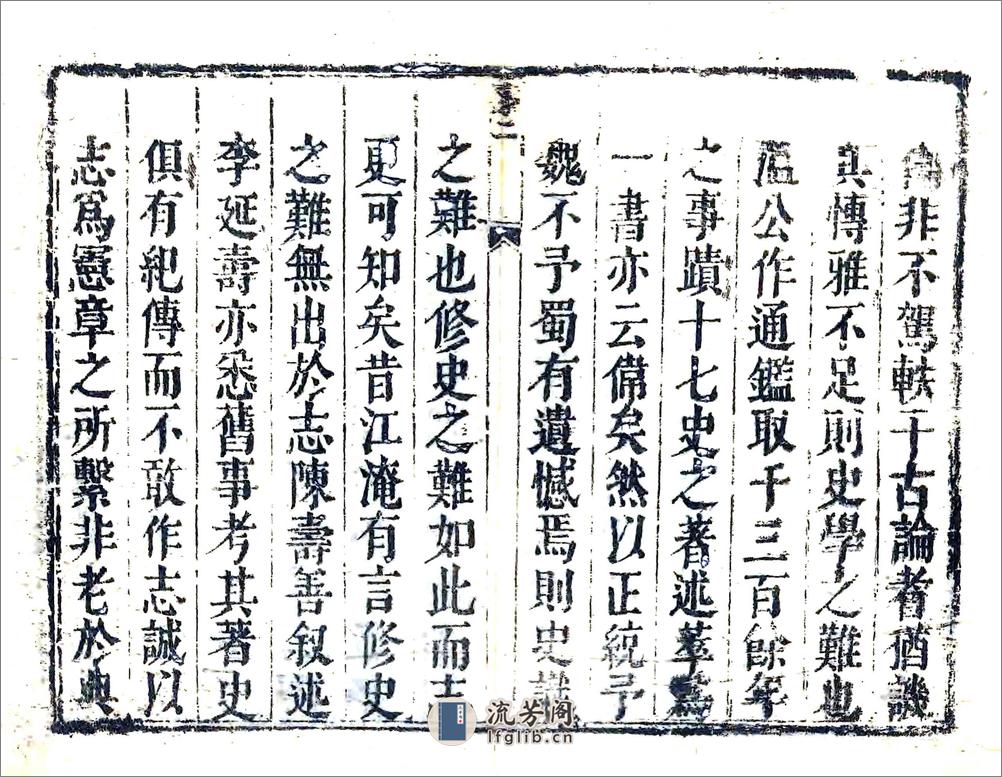 非不駕軼千古論者猶譏
其博雅不足則史學之難也
溫公作通鑑取千三百餘年
之事蹟十七史之著述萃為
一書亦云偉矣然以正統予
魏不予蜀有遺憾焉則史識
之難也修史之難如此而志
更可知矣昔江淹有言修史
之難無出於志陳壽善叙述
李延壽亦悉舊事考其著史
俱有紀傳而不敢作志誠以
志爲憲章之所繫非老於典
流芳阁
lfglib.cn